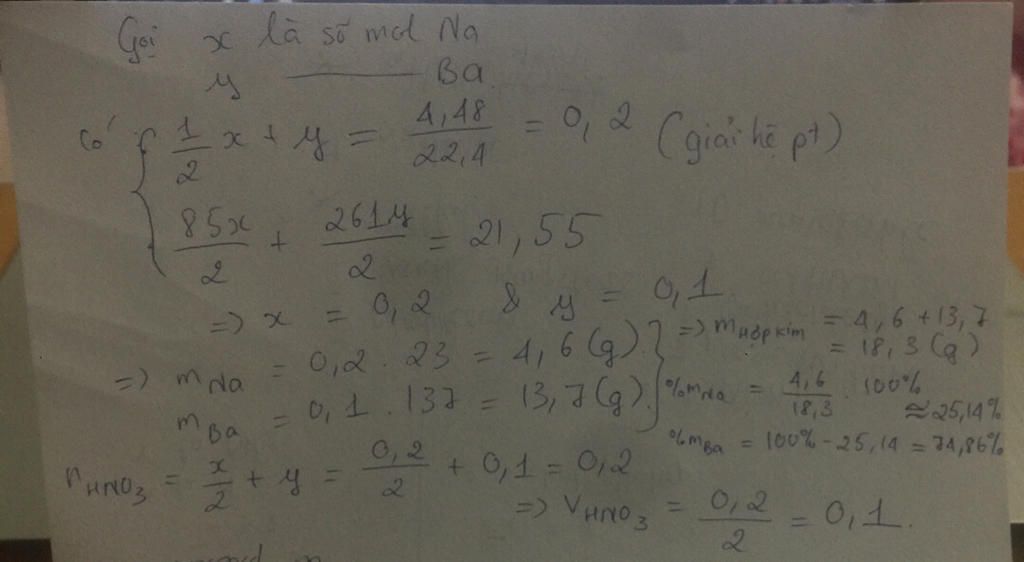 Gọi x là số mol Na
y ——— Ba
Có { 1/2 x + y = 4,48/22,4 = 0,2 (giải hệ pt)
85x/2 + 261y/2 = 21,55
=> x = 0,2 & y = 0,1
=> mNa = 0,2 . 23 = 4,6 (g)
mBa = 0,1 . 137 = 13,7 (g)
} => mHợp kim = 4,6 + 13,7
= 18,3 (g)
%mNa = 4,6/18,3 . 100%
≈ 25,14%
%mBa = 100% - 25,14 = 74,86%
nHNO3 = x/2 + y = 0,2/2 + 0,1 = 0,2
=> VHNO3 = 0,2/2 = 0,1.